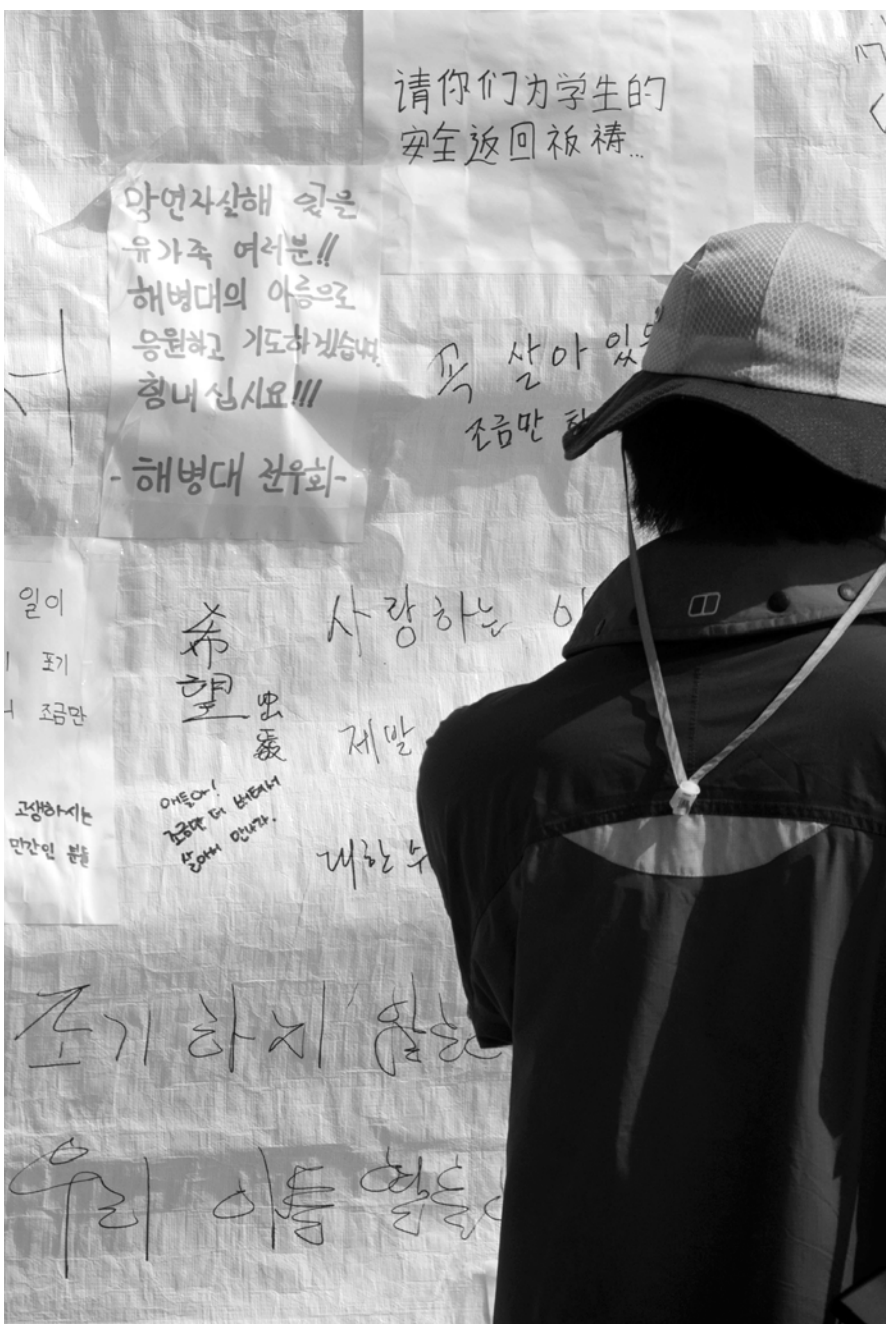 请你们为学生的
安全返回祈祷...
망연자실해 있을
유가족 여러분!!
해병대의 이름으로
응원하고 기도하겠습니다.
힘내십시요!!!
- 해병대 전우회-
꼭 살아 있
조금만
일이
포기
조금만
고생하시는
민간인 분들
希望
出發
애들아!
조금만 더 버텨서
살아서 만나자.
사랑하는
제발
대한
포기하지
우리 이들 힘들